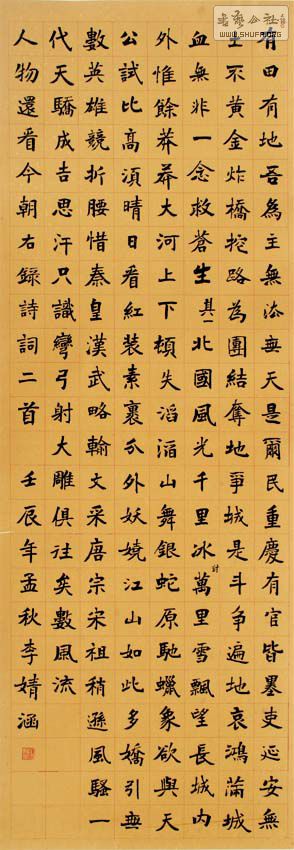 有田有地吾為主無法無天是爾民重慶有官皆墨吏延安無
土不黃金炸橋挖路為團結奪地爭城是斗争遍地哀鴻滿城
血無非一念救蒼生其一北國風光千里冰封萬里雪飄望長城内
外惟餘莽莽大河上下頓失滔滔山舞銀蛇原馳蠟象欲與天
公試比高須晴日看紅裝素裹分外妖嬈江山如此多嬌引無
數英雄競折腰惜秦皇漢武略輸文采唐宗宋祖稍遜風騷一
代天驕成吉思汗只識彎弓射大雕俱往矣數風流
人物還看今朝右錄詩詞二首 壬辰年孟秋李婧涵
WWW.SHUFA.ORG